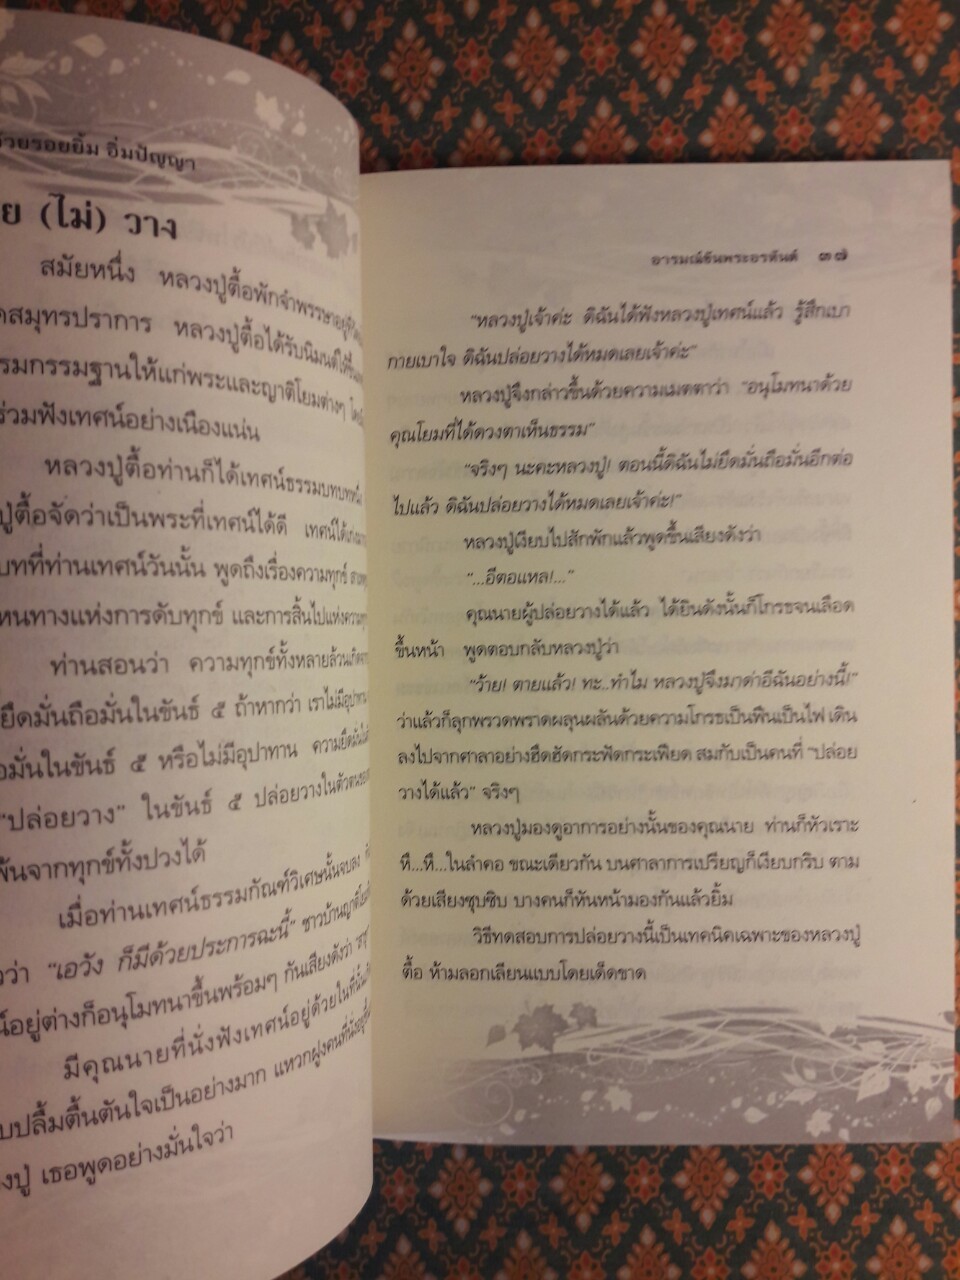 ด้วยรอยยิ้ม อิ่มปัญญา
(ไม่) วาง
สมัยหนึ่ง หลวงปู่ตื้อพักจำพรรษา
สมุทรปราการ หลวงปู่ตื้อได้รับนิมนต์ให้ขึ้น
กรรมฐานให้แก่พระและญาติโยมต่างๆ
ร่วมฟังเทศน์อย่างเนืองแน่น
หลวงปู่ตื้อท่านก็ได้เทศน์ธรรมบทบทหนึ่ง
ปู่ตื้อจัดว่าเป็นพระที่เทศน์ได้ดี
บทที่ท่านเทศน์วันนั้น พูดถึงเรื่องความทุกข์
หนทางแห่งการดับทุกข์ และการสิ้นไปแห่ง
ท่านสอนว่า ความทุกข์ทั้งหลายล้วน
ยึดมั่นถือมั่นในขันธ์ ๕ ถ้าหากว่า เราไม่มี
มั่นในขันธ์ ๕ หรือไม่มีอุปาทาน
“ปล่อยวาง” ในขันธ์ ๕ ปล่อยวางในตัวตน
พ้นจากทุกข์ทั้งปวงได้
เมื่อท่านเทศน์ธรรมกัณฑ์วิเศษนั้นจบลง
ว่า “เอวัง ก็มีด้วยประการฉะนี้” ชาวบ้าน
อยู่ต่างก็อนุโมทนาขึ้นพร้อมๆ กันเสียงดังว่า
มีคุณนายที่นั่งฟังเทศน์อยู่ด้วยในที่นั้น
ปลื้มตื้นตันใจเป็นอย่างมาก แหวกฝูงคน
ปู่ เธอพูดอย่างมั่นใจว่า
อารมณ์ขันพระอรหันต์ ๓๗
“หลวงปู่เจ้าค่ะ ดิฉันได้ฟังหลวงปู่เทศน์แล้ว รู้สึกเบา
กายเบาใจ ดิฉันปล่อยวางได้หมดเลยเจ้าค่ะ”
หลวงปู่จึงกล่าวขึ้นด้วยความเมตตาว่า “อนุโมทนาด้วย
คุณโยมที่ได้ดวงตาเห็นธรรม”
“จริงๆ นะคะหลวงปู่! ตอนนี้ดิฉันไม่ยึดมั่นถือมั่นอีกต่อ
ไปแล้ว ดิฉันปล่อยวางได้หมดเลยเจ้าค่ะ!”
หลวงปู่เงียบไปสักพักแล้วพูดขึ้นเสียงดังว่า
“...อีตอแหล!...”
คุณนายผู้ปล่อยวางได้แล้ว ได้ยินดังนั้นก็โกรธจนเลือด
ขึ้นหน้า พูดตอบกลับหลวงปู่ว่า
“ว้าย! ตายแล้ว! ทะ..ทำไม หลวงปู่จึงมาด่าอีฉันอย่างนี้!”
ว่าแล้วก็ลุกพรวดพราดผลุนผลันด้วยความโกรธเป็นฟืนเป็นไฟ เดิน
ลงไปจากศาลาอย่างฮึดฮัดกระฟัดกระเฟียด สมกับเป็นคนที่ “ปล่อย
วางได้แล้ว” จริงๆ
หลวงปู่มองดูอาการอย่างนั้นของคุณนาย ท่านก็หัวเราะ
หึ...หึ...ในลำคอ ขณะเดียวกัน บนศาลาการเปรียญก็เงียบกริบ ตาม
ด้วยเสียงซุบซิบ บางคนก็หันหน้ามองกันแล้วยิ้ม
วิธีทดสอบการปล่อยวางนี้เป็นเทคนิคเฉพาะของหลวงปู่
ตื้อ ห้ามลอกเลียนแบบโดยเด็ดขาด